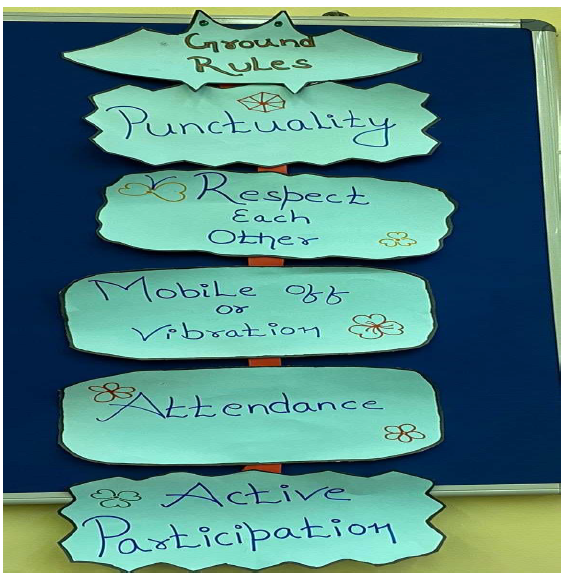 Ground
Rules
Punctuality
Respect
Each
Other
Mobile off
or
Vibration
Attendance
Active
Participation